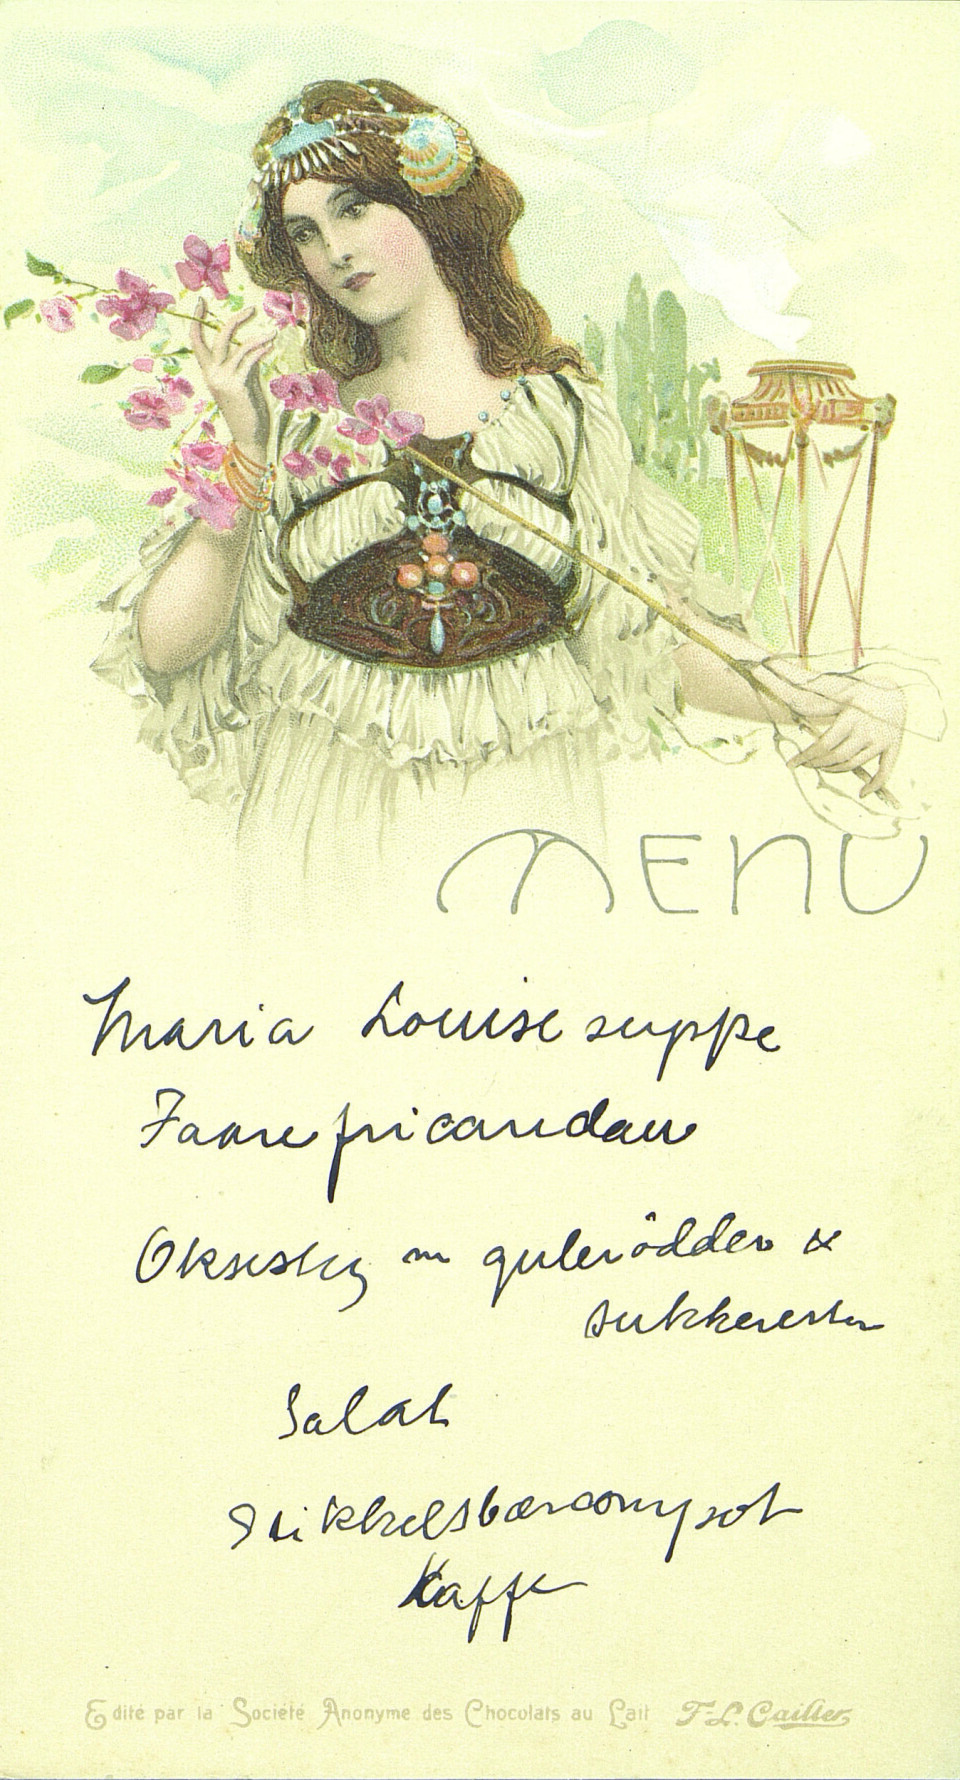 MENU
Maria Louise suppe
Faare fricandau
Oksesteg m gulerödder &
sukkererter
Salat
Stikkelsbærcompot
Kaffe
Edité par la Société Anonyme des Chocolats au Lait F.-L. Cailler